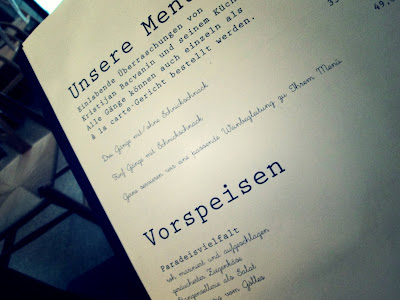 Unsere Menü
Einlebende Überraschungen von
Kristijan Bacvanin und seinem Küch
Alle Gänge können auch einzeln als
à la carte-Gericht bestellt werden.
35
49,0
Drei Gänge mit/ohne Schnickschnack
Fünf Gänge mit Schnickschnack
Gerne servieren wir eine passende Weinbegleitung zu Ihrem Menü
Vorspeisen
Paradeisvielfalt
roh mariniert und aufgeschlagen
geräucherter Ziegenkäse
Stangensellerie als Salat
vom Göttles